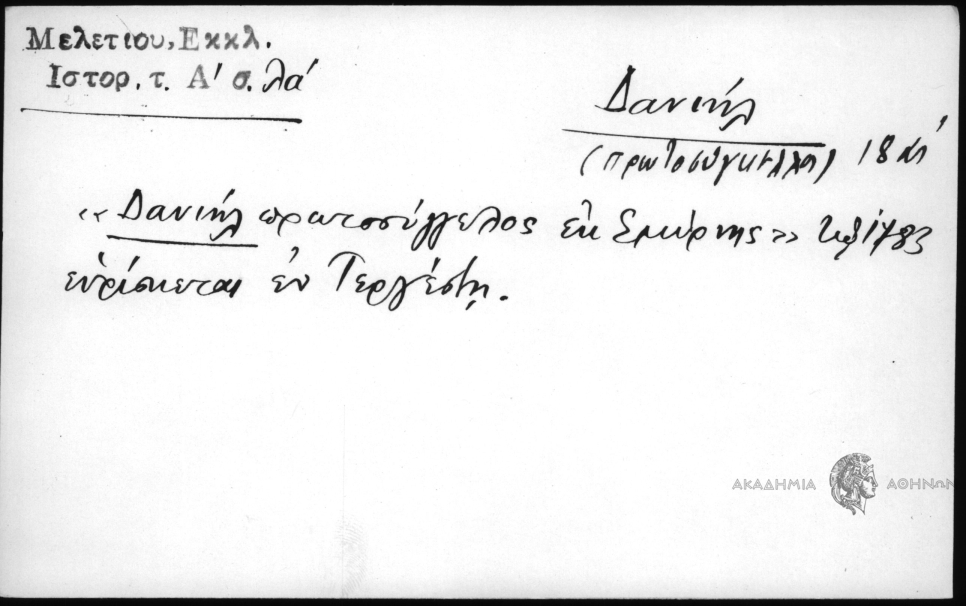 Μελετιου, Εκκλ.
Ιστορ. τ. Α' σ. λα'
Δανιήλ
(πρωτοσύγκελλος) 18 αι
«Δανιήλ πρωτοσύγγελος ἐκ Σμύρνης» 1783
εὑρίσκεται ἐν Τεργέστῃ.
ΑΚΑΔΗΜΙΑ ΑΘΗΝΩΝ